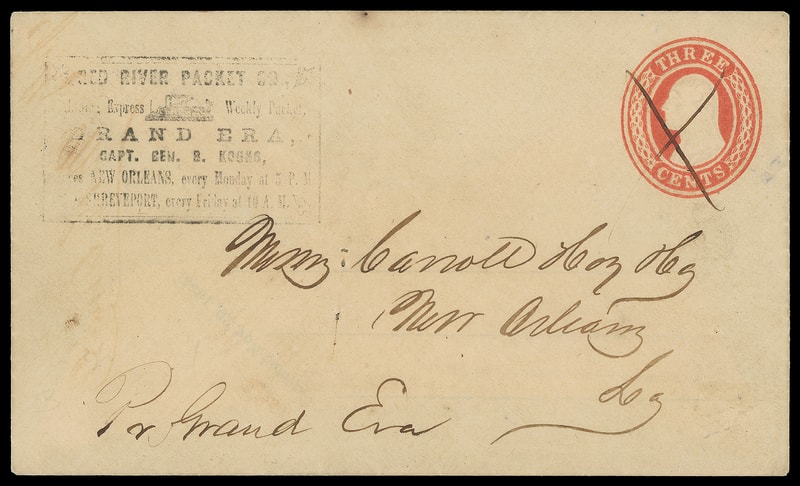 RED RIVER PACKET CO.,
Express Weekly Packet,
GRAND ERA,
CAPT. BEN. B. KOUNS,
NEW ORLEANS, every Monday at 5 P. M
SHREVEPORT, every Friday at 10 A. M.
THREE
CENTS
Messrs Carroll Hoy
New Orleans
La
Pr Grand Era